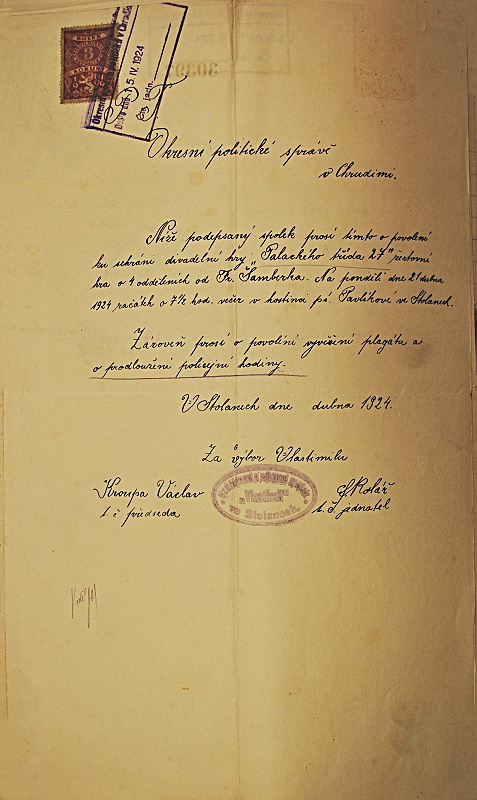 KOLEK
3
KORUNY
15. IV. 1924
Okresní politické správě
v Chrudimi.
Níže podepsaný spolek prosí tímto o povolení
ku sehrání divadelní hry „Palackého třída 27" žertovní
hra o 4 odděleních od Fr. Šamberka. Na pondělí dne 21 dubna
1924 začátek o 7½ hod. večer v hostinci pí. Pavlíkové ve Stolanech.
Zároveň prosí o povolení vyvěšení plagátu a
o prodloužení policejní hodiny.
V Stolanech dne dubna 1924.
Za výbor Vlastimilu
Kroupa Václav
t. č. předseda
Kolář
t. č. jednatel
„Vlastimil"
ve Stolanech.